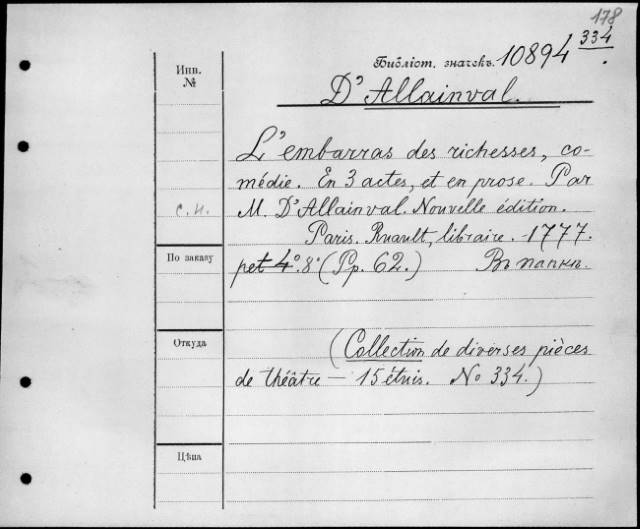 178
Инв. №
Библіот. значекъ. 10894 334.
D'Allainval.
L'embarras des richesses, co-
médie. En 3 actes, et en prose. Par
с.и. M. D'Allainval. Nouvelle édition.
Paris. Ruault, libraire. 1777.
По заказу pet 4º. 8º (Pp. 62.) Въ папкѣ.
Откуда (Collection de diverses pièces
de théâtre — 15 étuis. No 334.)
Цѣна